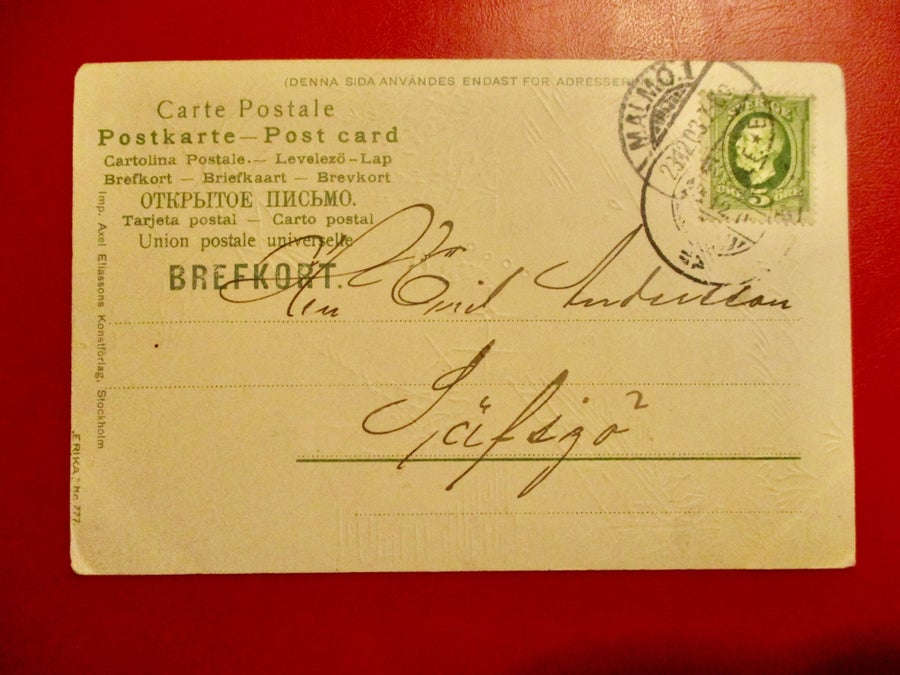 (DENNA SIDA ANVÄNDES ENDAST FÖR ADRESSEN
Carte Postale
Postkarte — Post card
Cartolina Postale. — Levelező - Lap
Brefkort — Briefkaart — Brevkort
ОТКРЫТОЕ ПИСЬМО.
Tarjeta postal — Carto postal
Union postale universelle
BREFKORT.
Imp. Axel Eliassons Konstförlag, Stockholm
„ERIKA," No. 777.
MALMÖ. 1
5 ÖRE
Andersson
Säfsjö